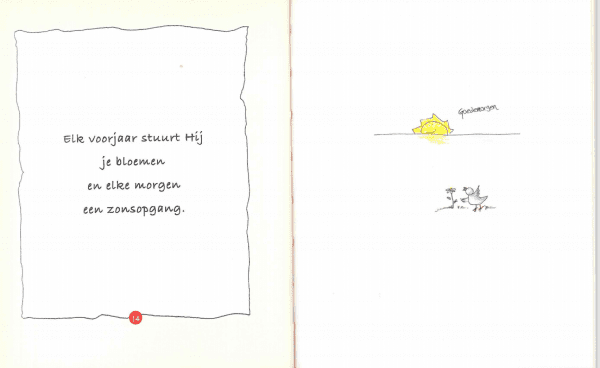 Elk voorjaar stuurt Hij
je bloemen
en elke morgen
een zonsopgang.
14
Goedemorgen